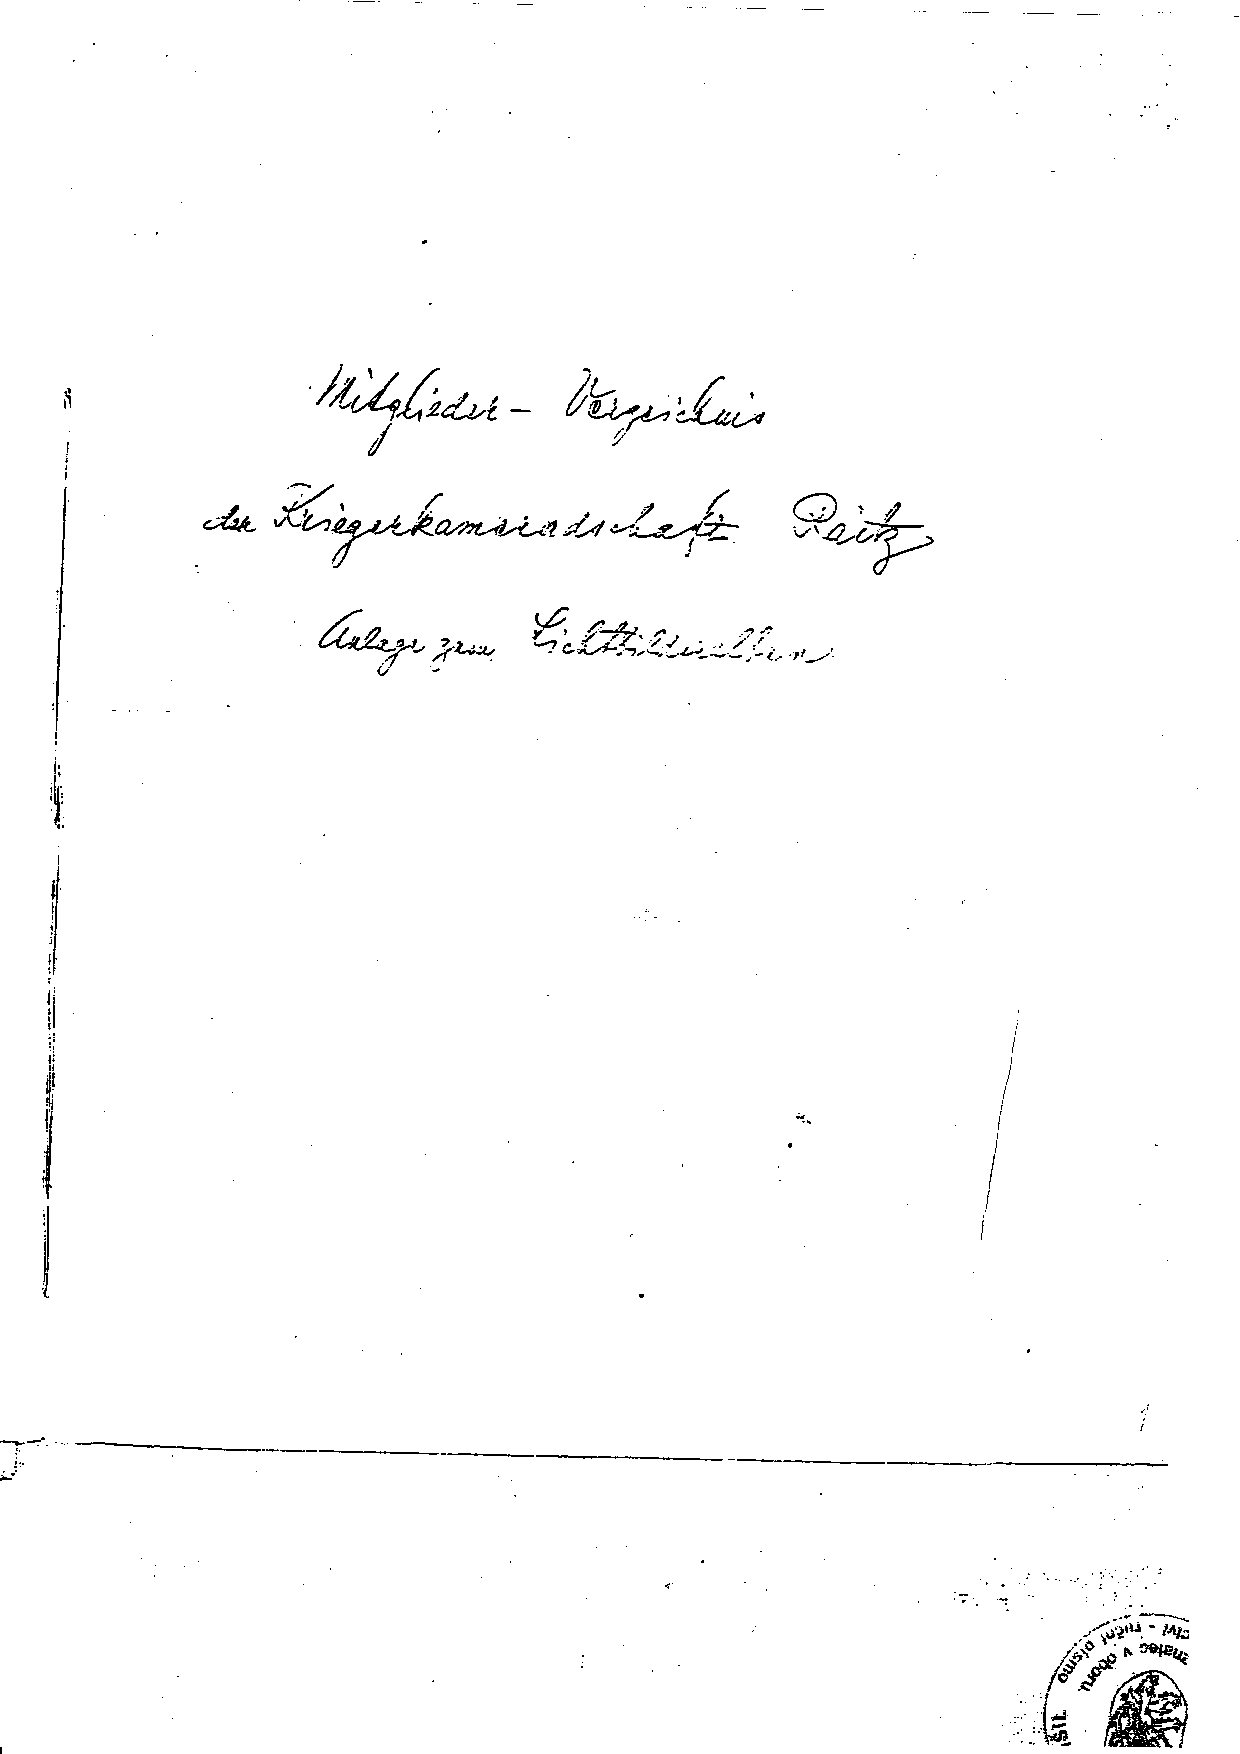 Mitglieder - Verzeichnis
der Kriegerkameradschaft Raitz
Anlage zum Lichtbilderalben
1
ctví - ruční písmo
znalec v oboru